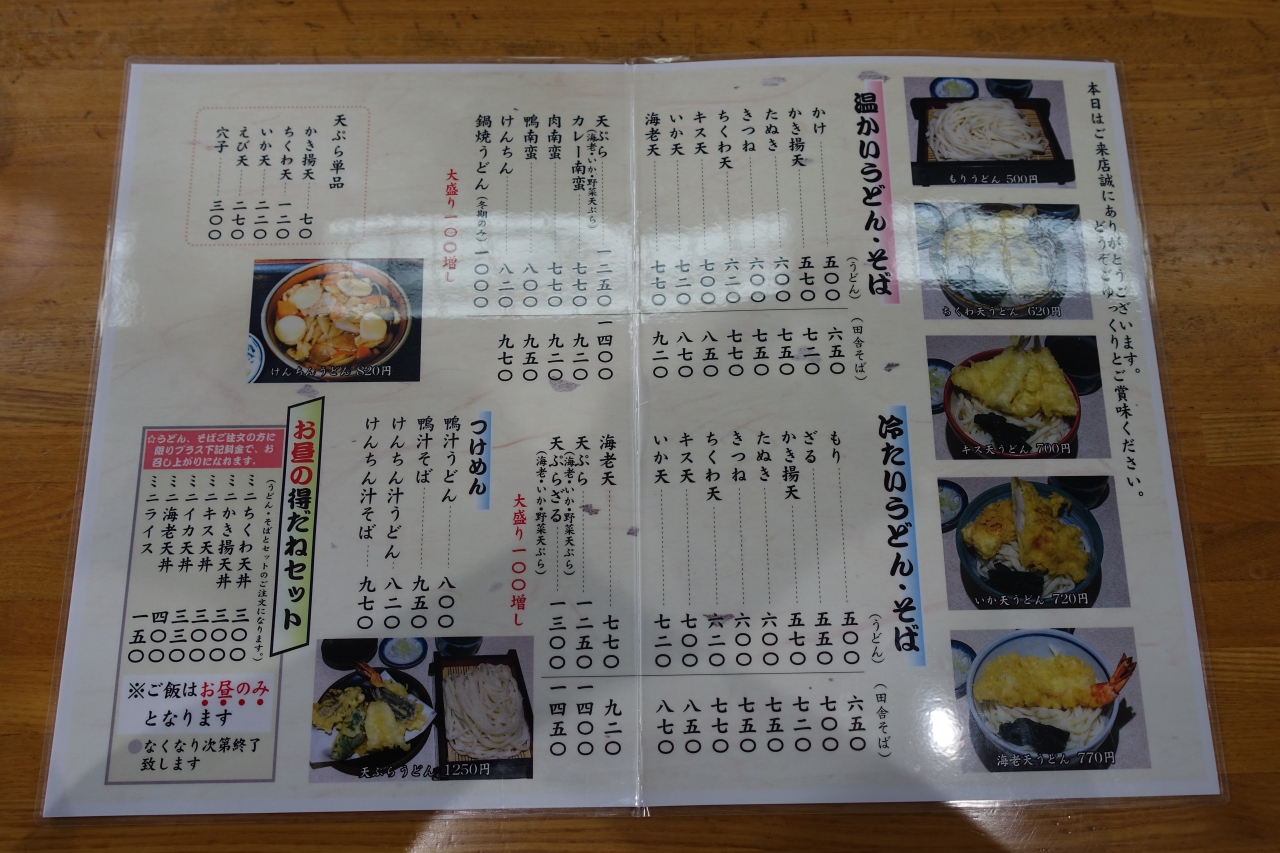 本日はご来店誠にありがとうございます。
どうぞごゆっくりとご賞味ください。
もりうどん 500円
ちくわ天うどん 620円
キス天うどん 700円
いか天うどん 720円
海老天うどん 770円
温かいうどん・そば
(うどん) (田舎そば)
かけ 五〇〇 六五〇
かき揚天 五七〇 七二〇
たぬき 六〇〇 七五〇
きつね 六〇〇 七五〇
ちくわ天 六二〇 七七〇
キス天 七〇〇 八五〇
いか天 七二〇 八七〇
海老天 七七〇 九二〇
天ぷら(海老・いか・野菜天ぷら) 一二五〇 一四〇〇
カレー南蛮 七七〇 九二〇
肉南蛮 七七〇 九二〇
鴨南蛮 八〇〇 九五〇
けんちん 八二〇 九七〇
鍋焼うどん(冬期のみ) 一〇〇〇
大盛り一〇〇増し
天ぷら単品
かき揚天 七〇
ちくわ天 一二〇
いか天 二二〇
えび天 二七〇
穴子 三〇〇
けんちんうどん 820円
冷たいうどん・そば
(うどん) (田舎そば)
もり 五〇〇 六五〇
ざる 五五〇 七〇〇
かき揚天 五七〇 七二〇
たぬき 六〇〇 七五〇
きつね 六〇〇 七五〇
ちくわ天 六二〇 七七〇
キス天 七〇〇 八五〇
いか天 七二〇 八七〇
海老天 七七〇 九二〇
天ぷら(海老・いか・野菜天ぷら) 一二五〇 一四〇〇
天ぷらざる(海老・いか・野菜天ぷら) 一三〇〇 一四五〇
大盛り一〇〇増し
つけめん
鴨汁うどん 八〇〇
鴨汁そば 九五〇
けんちん汁うどん 八二〇
けんちん汁そば 九七〇
天ぷらうどん 1250円
お昼の得だねセット
☆うどん、そばご注文の方に
限りプラス下記料金で、お
召し上がりになれます。
(うどん・そばとセットのご注文になります。)
ミニちくわ天丼 三〇〇
ミニかき揚天丼 三〇〇
ミニキス天丼 三〇〇
ミニイカ天丼 三三〇
ミニ海老天丼 四〇〇
ミニライス 一五〇
※ご飯はお昼のみ
となります
●なくなり次第終了
致します